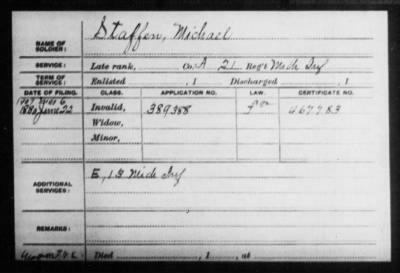 NAME OF SOLDIER: Staffen, Michael
SERVICE: Late rank, Co. A 21 Reg't Mich Inf
TERM OF SERVICE: Enlisted , 1 Discharged , 1
DATE OF FILING. CLASS. APPLICATION NO. LAW. CERTIFICATE NO.
1880 June 22 Invalid, 389388 467783
Widow,
Minor,
ADDITIONAL SERVICES: E, 13 Mich Inf
REMARKS:
Died , 1 , at